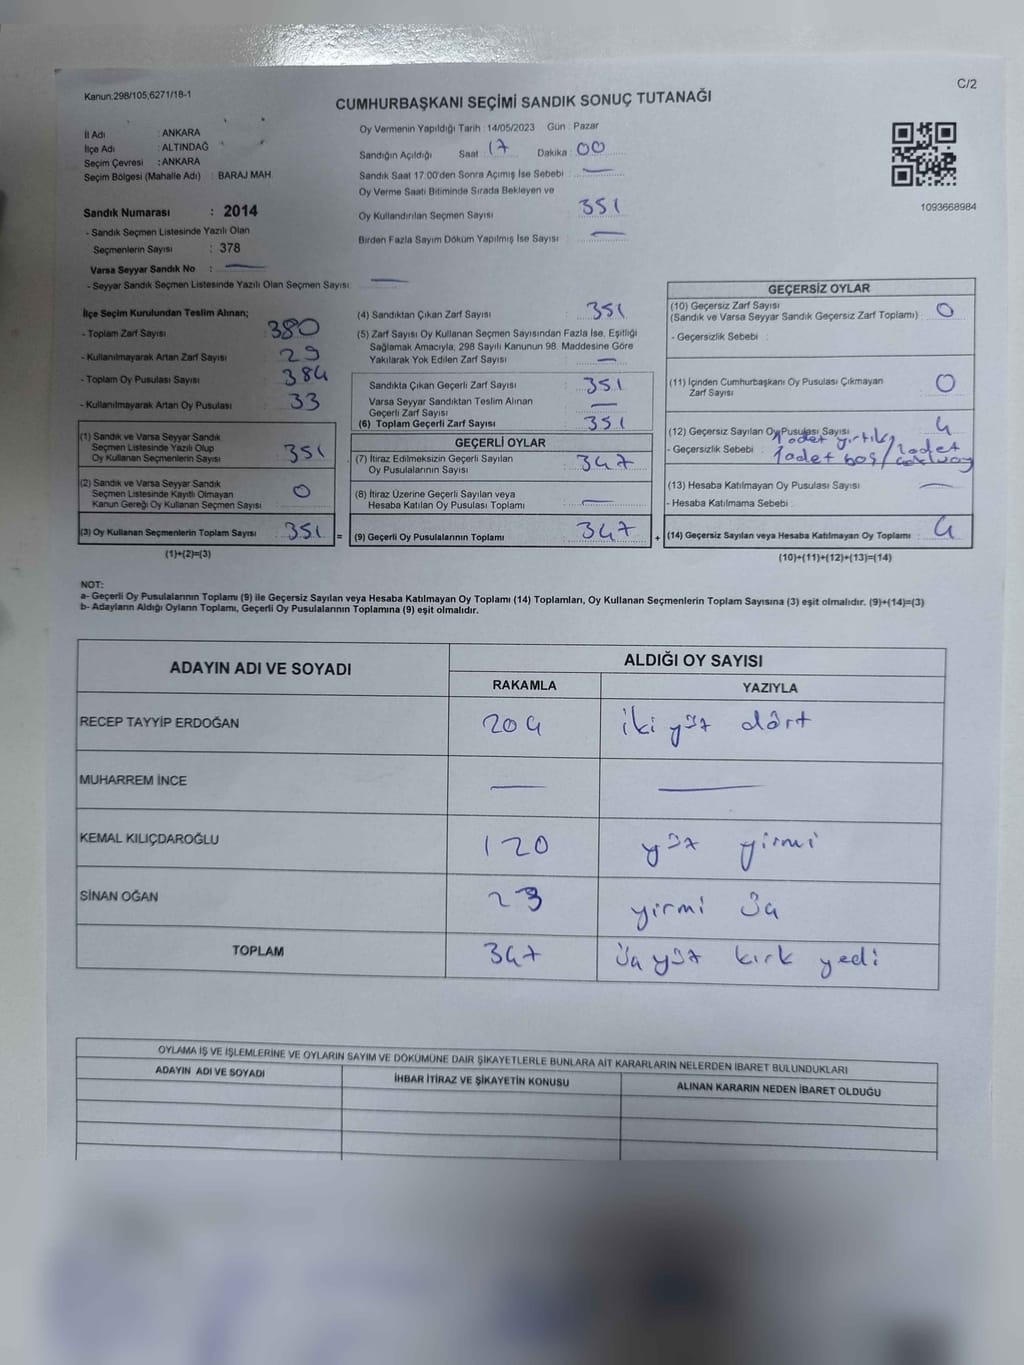 Kanun:298/105,6271/18-1
C/2
CUMHURBAŞKANI SEÇİMİ SANDIK SONUÇ TUTANAĞI
İl Adı : ANKARA
İlçe Adı : ALTINDAĞ
Seçim Çevresi : ANKARA
Seçim Bölgesi (Mahalle Adı) : BARAJ MAH.
Sandık Numarası : 2014
- Sandık Seçmen Listesinde Yazılı Olan
Seçmenlerin Sayısı : 378
Varsa Seyyar Sandık No : —
- Seyyar Sandık Seçmen Listesinde Yazılı Olan Seçmen Sayısı : —
Oy Vermenin Yapıldığı Tarih : 14/05/2023 Gün : Pazar
Sandığın Açıldığı Saat : 17 Dakika : 00
Sandık Saat 17:00'den Sonra Açımış İse Sebebi : —
Oy Verme Saati Bitiminde Sırada Bekleyen ve
Oy Kullandırılan Seçmen Sayısı : 351
Birden Fazla Sayım Döküm Yapılmış İse Sayısı : —
1093668984
İlçe Seçim Kurulundan Teslim Alınan;
- Toplam Zarf Sayısı : 380
- Kullanılmayarak Artan Zarf Sayısı : 29
- Toplam Oy Pusulası Sayısı : 384
- Kullanılmayarak Artan Oy Pusulası : 33
(1) Sandık ve Varsa Seyyar Sandık
Seçmen Listesinde Yazılı Olup
Oy Kullanan Seçmenlerin Sayısı : 351
(2) Sandık ve Varsa Seyyar Sandık
Seçmen Listesinde Kayıtlı Olmayan
Kanun Gereği Oy Kullanan Seçmen Sayısı : 0
(3) Oy Kullanan Seçmenlerin Toplam Sayısı : 351
(1)+(2)=(3)
(4) Sandıktan Çıkan Zarf Sayısı : 351
(5) Zarf Sayısı Oy Kullanan Seçmen Sayısından Fazla İse, Eşitliği
Sağlamak Amacıyla, 298 Sayılı Kanunun 98. Maddesine Göre
Yakılarak Yok Edilen Zarf Sayısı : —
Sandıkta Çıkan Geçerli Zarf Sayısı : 351
Varsa Seyyar Sandıktan Teslim Alınan
Geçerli Zarf Sayısı : —
(6) Toplam Geçerli Zarf Sayısı : 351
GEÇERLİ OYLAR
(7) İtiraz Edilmeksizin Geçerli Sayılan
Oy Pusulalarının Sayısı : 347
(8) İtiraz Üzerine Geçerli Sayılan veya
Hesaba Katılan Oy Pusulası Toplamı : —
= (9) Geçerli Oy Pusulalarının Toplamı : 347
GEÇERSİZ OYLAR
(10) Geçersiz Zarf Sayısı
(Sandık ve Varsa Seyyar Sandık Geçersiz Zarf Toplamı) : 0
- Geçersizlik Sebebi :
(11) İçinden Cumhurbaşkanı Oy Pusulası Çıkmayan
Zarf Sayısı : 0
(12) Geçersiz Sayılan Oy Pusulası Sayısı : 4
1 adet yırtık
- Geçersizlik Sebebi : 1 adet boş / 2 adet
(13) Hesaba Katılmayan Oy Pusulası Sayısı : —
- Hesaba Katılmama Sebebi :
+ (14) Geçersiz Sayılan veya Hesaba Katılmayan Oy Toplamı : 4
(10)+(11)+(12)+(13)=(14)
NOT:
a- Geçerli Oy Pusulalarının Toplamı (9) ile Geçersiz Sayılan veya Hesaba Katılmayan Oy Toplamı (14) Toplamları, Oy Kullanan Seçmenlerin Toplam Sayısına (3) eşit olmalıdır. (9)+(14)=(3)
b- Adayların Aldığı Oyların Toplamı, Geçerli Oy Pusulalarının Toplamına (9) eşit olmalıdır.
ADAYIN ADI VE SOYADI ALDIĞI OY SAYISI
RAKAMLA YAZIYLA
RECEP TAYYİP ERDOĞAN 204 iki yüz dört
MUHARREM İNCE — —
KEMAL KILIÇDAROĞLU 120 yüz yirmi
SİNAN OĞAN 23 yirmi üç
TOPLAM 347 üç yüz kırk yedi
OYLAMA İŞ VE İŞLEMLERİNE VE OYLARIN SAYIM VE DÖKÜMÜNE DAİR ŞİKAYETLERLE BUNLARA AİT KARARLARIN NELERDEN İBARET BULUNDUKLARI
ADAYIN ADI VE SOYADI İHBAR İTİRAZ VE ŞİKAYETİN KONUSU ALINAN KARARIN NEDEN İBARET OLDUĞU